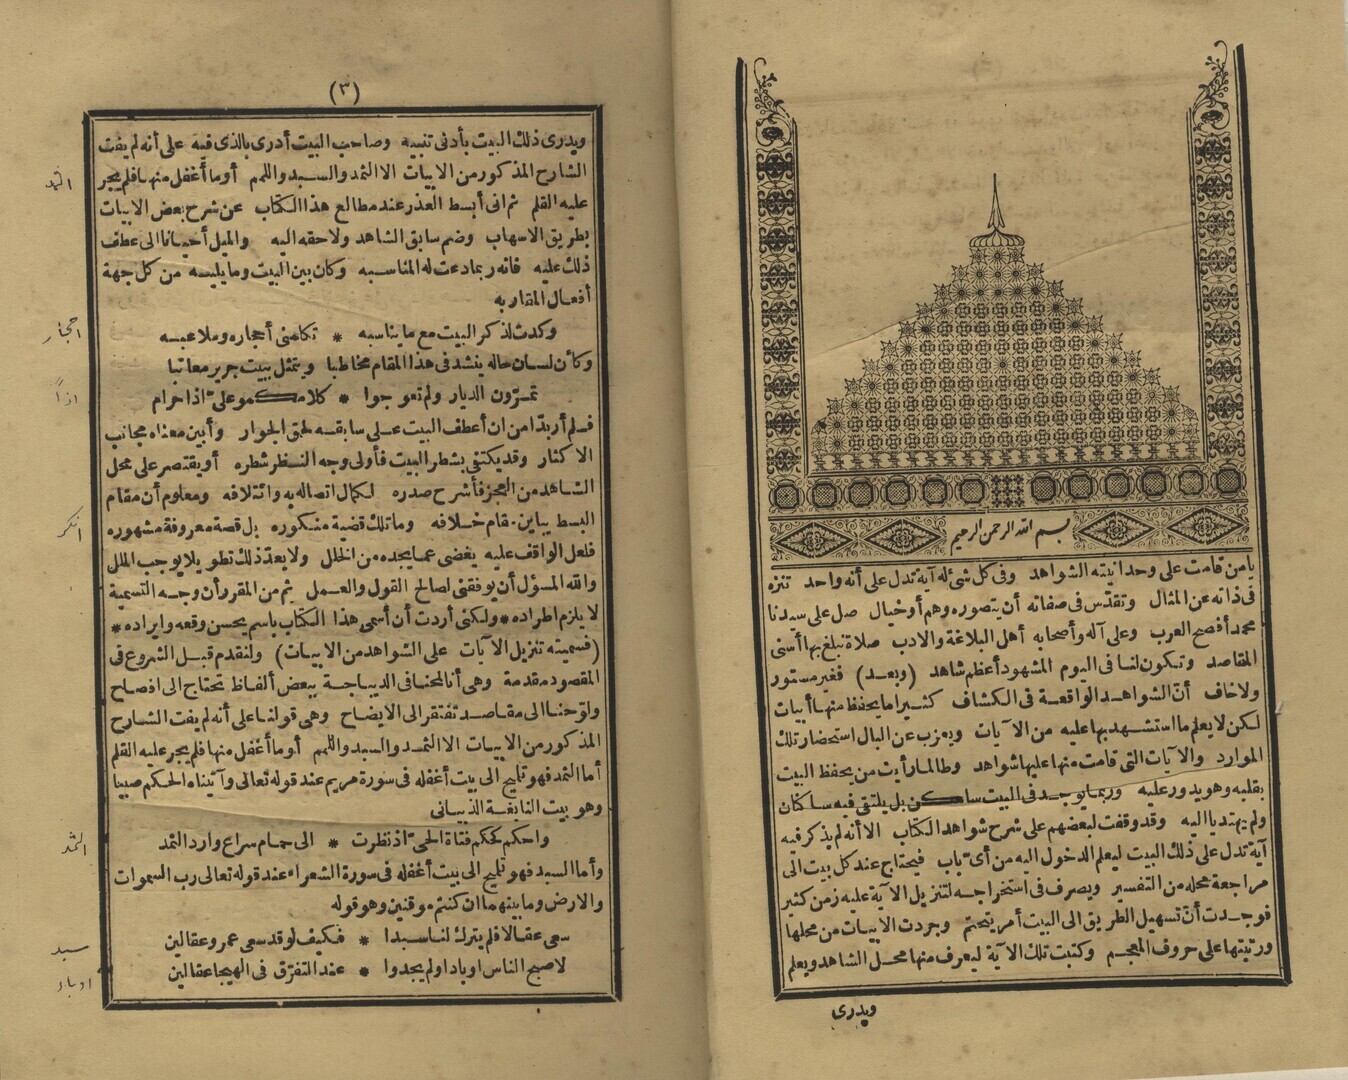 بسم الله الرحمن الرحيم
يا من قامت على وحدانيته الشواهد وفى كل شئ له آية تدل على أنه واحد تنزه
فى ذاته عن المثال وتقدّس فى صفاته أن يتصوره وهم أو خيال صل على سيدنا
محمد أفصح العرب وعلى آله وأصحابه أهل البلاغة والادب صلاة نبلغ بها أسنى
المقاصد وتكون لنا فى اليوم المشهود أعظم شاهد (وبعد) فغير مستور
ولا خاف أنّ الشواهد الواقعة فى الكشاف كثيرا ما يحفظ منها أبيات
لكن لا يعلم ما استشهد بها عليه من الآيات ويعزب عن البال استحضار تلك
الموارد والآيات التى قامت منها عليها شواهد وطالما رأيت من يحفظ البيت
بقلبه وهو يدور عليه وربما يوجد فى البيت ساكن بل يلتقى فيه ساكنان
ولم يهتد يا اليه وقد وقفت لبعضهم على شرح شواهد الكتاب الا أنه لم يذكر فيه
آية تدل على ذلك البيت ليعلم الدخول اليه من أى باب فيحتاج عند كل بيت الى
مراجعة محله من التفسير ويصرف فى استخراجه لتنزيل الآية عليه زمن كثير
فوجدت أنّ تسهيل الطريق الى البيت أمر يتحتم وجردت الابيات من محلها
ورتبتها على حروف المعجم وكتبت تلك الآية ليعرف منها محل الشاهد ويعلم
ويدرى
(٣)
ويدرى ذلك البيت بأدنى تنبيه وصاحب البيت أدرى بالذى فيه على أنه لم يفت
الشارح المذكور من الابيات الا الثمد والسبد واللمم أو ما أغفل منها فلم يجر
عليه القلم ثم انى أبسط العذر عند مطالع هذا الكتاب عن شرح بعض الابيات
بطريق الاسهاب وضم سابق الشاهد ولاحقه اليه والميل أحيانا الى عطف
ذلك عليه فانه ربما دعت له المناسبه وكان بين البيت وما يليه من كل جهة
أفعال المقاربه
وكدت لذكر البيت مع ما يناسبه * تكلمنى أحجاره وملاعبه
وكأن لسان حاله ينشد فى هذا المقام مخاطبا ويتمثل ببيت جرير معاتبا
تمرّون الديار ولم تعوجوا * كلامكمو علىّ اذا حرام
فلم أر بدّا من ان أعطف البيت على سابقه لحق الجوار وأبين معناه مجانب
الاكثار وقد يكتفى بشطر البيت فأولى وجه النظر شطره أو يقتصر على محل
الشاهد من العجز فأشرح صدره لكمال اتصاله به وائتلافه ومعلوم أن مقام
البسط يباين مقام خلافه وما تلك قضية منكوره بل قصة معروفة مشهوره
فلعل الواقف عليه يغضى عما يجده من الخلل ولا يعد ذلك تطويلا يوجب الملل
والله المسؤل أن يوفقنى لصالح القول والعمل ثم من المقرر أن وجه التسمية
لا يلزم اطراده * ولكنى أردت أن أسمى هذا الكتاب باسم يحسن وقعه وايراده *
(فسميته تنزيل الآيات على الشواهد من الابيات) ولنقدم قبل الشروع فى
المقصود مقدمة وهى أنا لمحنا فى الديباجة ببعض ألفاظ تحتاج الى افصاح
ولوّحنا الى مقاصد تفتقر الى الايضاح وهى قولنا على أنه لم يفت الشارح
المذكور من الابيات الا الثمد والسبد واللمم أو ما أغفل منها فلم يجر عليه القلم
أما الثمد فهو تلميح الى بيت أغفله فى سورة مريم عند قوله تعالى وآتيناه الحكم صبيا
وهو بيت النابغة الذبيانى
واحكم كحكم فتاة الحىّ اذ نظرت * الى حمام سراع وارد الثمد
وأما السبد فهو تلميح الى بيت أغفله فى سورة الشعراء عند قوله تعالى رب السموات
والارض وما بينهما ان كنتم موقنين وهو قوله
سعى عقالا فلم يترك لنا سبدا * فكيف لو قد سعى عمرو عقالين
لاصبح الناس أوبادا ولم يجدوا * عند التفرّق فى الهيجا عقالين
الثمد
احجار
اذاً
الثمد
سبد
اوباد